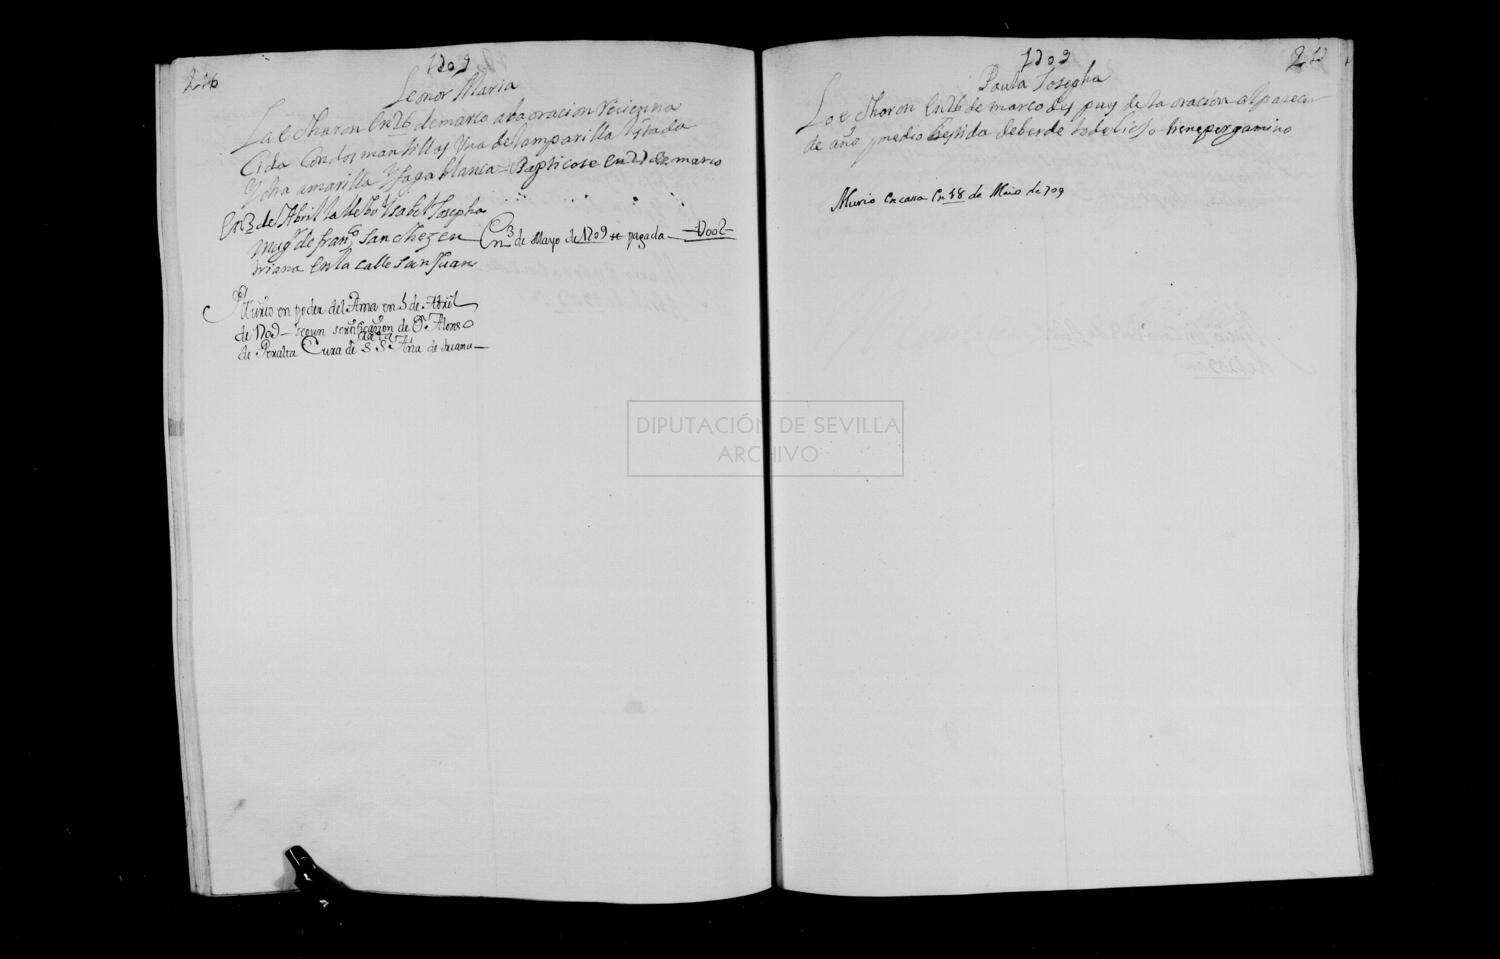 246
1709
Leonor Maria
La e Tharon En 26 de março a la oracion Recienna
Cida Con dos mantillas Una de lamparilla listada
Y otra amarilla Y faga blanca = Baptiçose en 27 de março
En 3 de Abril la llebo Ysabel Josepha
Mugr de franco Sanchez en
triana En la calle San Juan
En 3 de Mayo de 1709 se pagada — U002
Murio en poder del Ama en 5 de Abril
de 1709 — segun sertificazon de Dn Alonso
de Peralta Cura de S Sta Ana de triana —
1709
247
Paula Josepha
La e Tharon En 26 de março des puus de la oraciòn al pareçer
de año y medio Bestida de berde todo lieso tiene pergamino
Murio En cassa En 18 de Maio de 709
DIPUTACIÓN DE SEVILLA
ARCHIVO